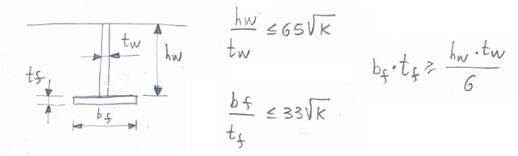 tw
hw
tf
bf
hw/tw ≤ 65√K
bf/tf ≤ 33√K
bf · tf ≥ hw · tw / 6